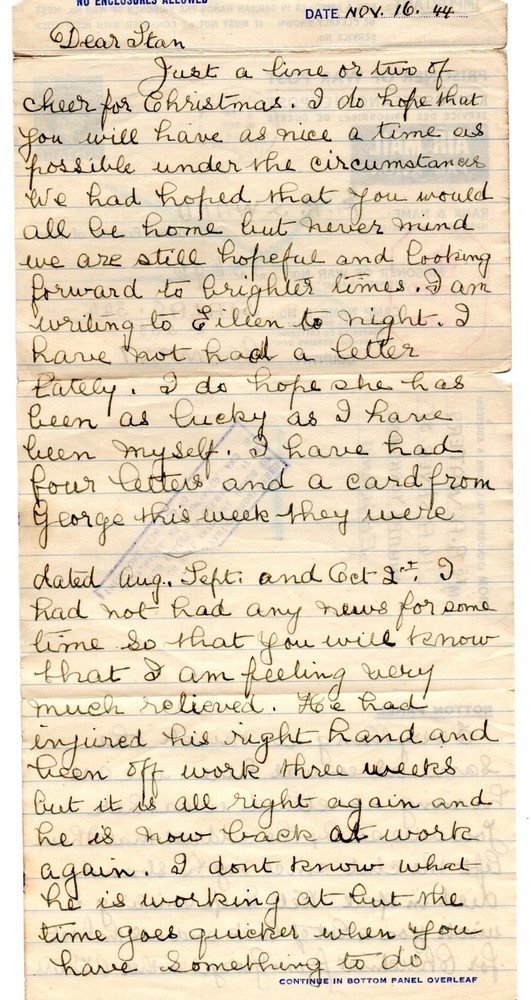 NO ENCLOSURES ALLOWED
DATE NOV. 16. 44
Dear Stan
Just a line or two of
cheer for Christmas. I do hope that
you will have as nice a time as
possible under the circumstances
We had hoped that you would
all be home but never mind
we are still hopeful and looking
forward to brighter times. I am
writing to Eileen to night. I
have not had a letter
lately. I do hope she has
been as lucky as I have
been myself. I have had
four letters and a card from
George this week they were
dated Aug. Sept: and Oct 2nd. I
had not had any news for some
time so that you will know
that I am feeling very
much relieved. He had
injured his right hand and
been off work three weeks
but it is all right again and
he is now back at work
again. I dont know what
he is working at but the
time goes quicker when you
have something to do
CONTINUE IN BOTTOM PANEL OVERLEAF